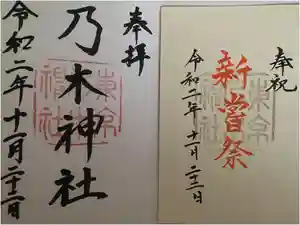 奉拝
乃木神社
令和二年十一月二十三日
奉祝
新嘗祭
令和二年十一月二十三日